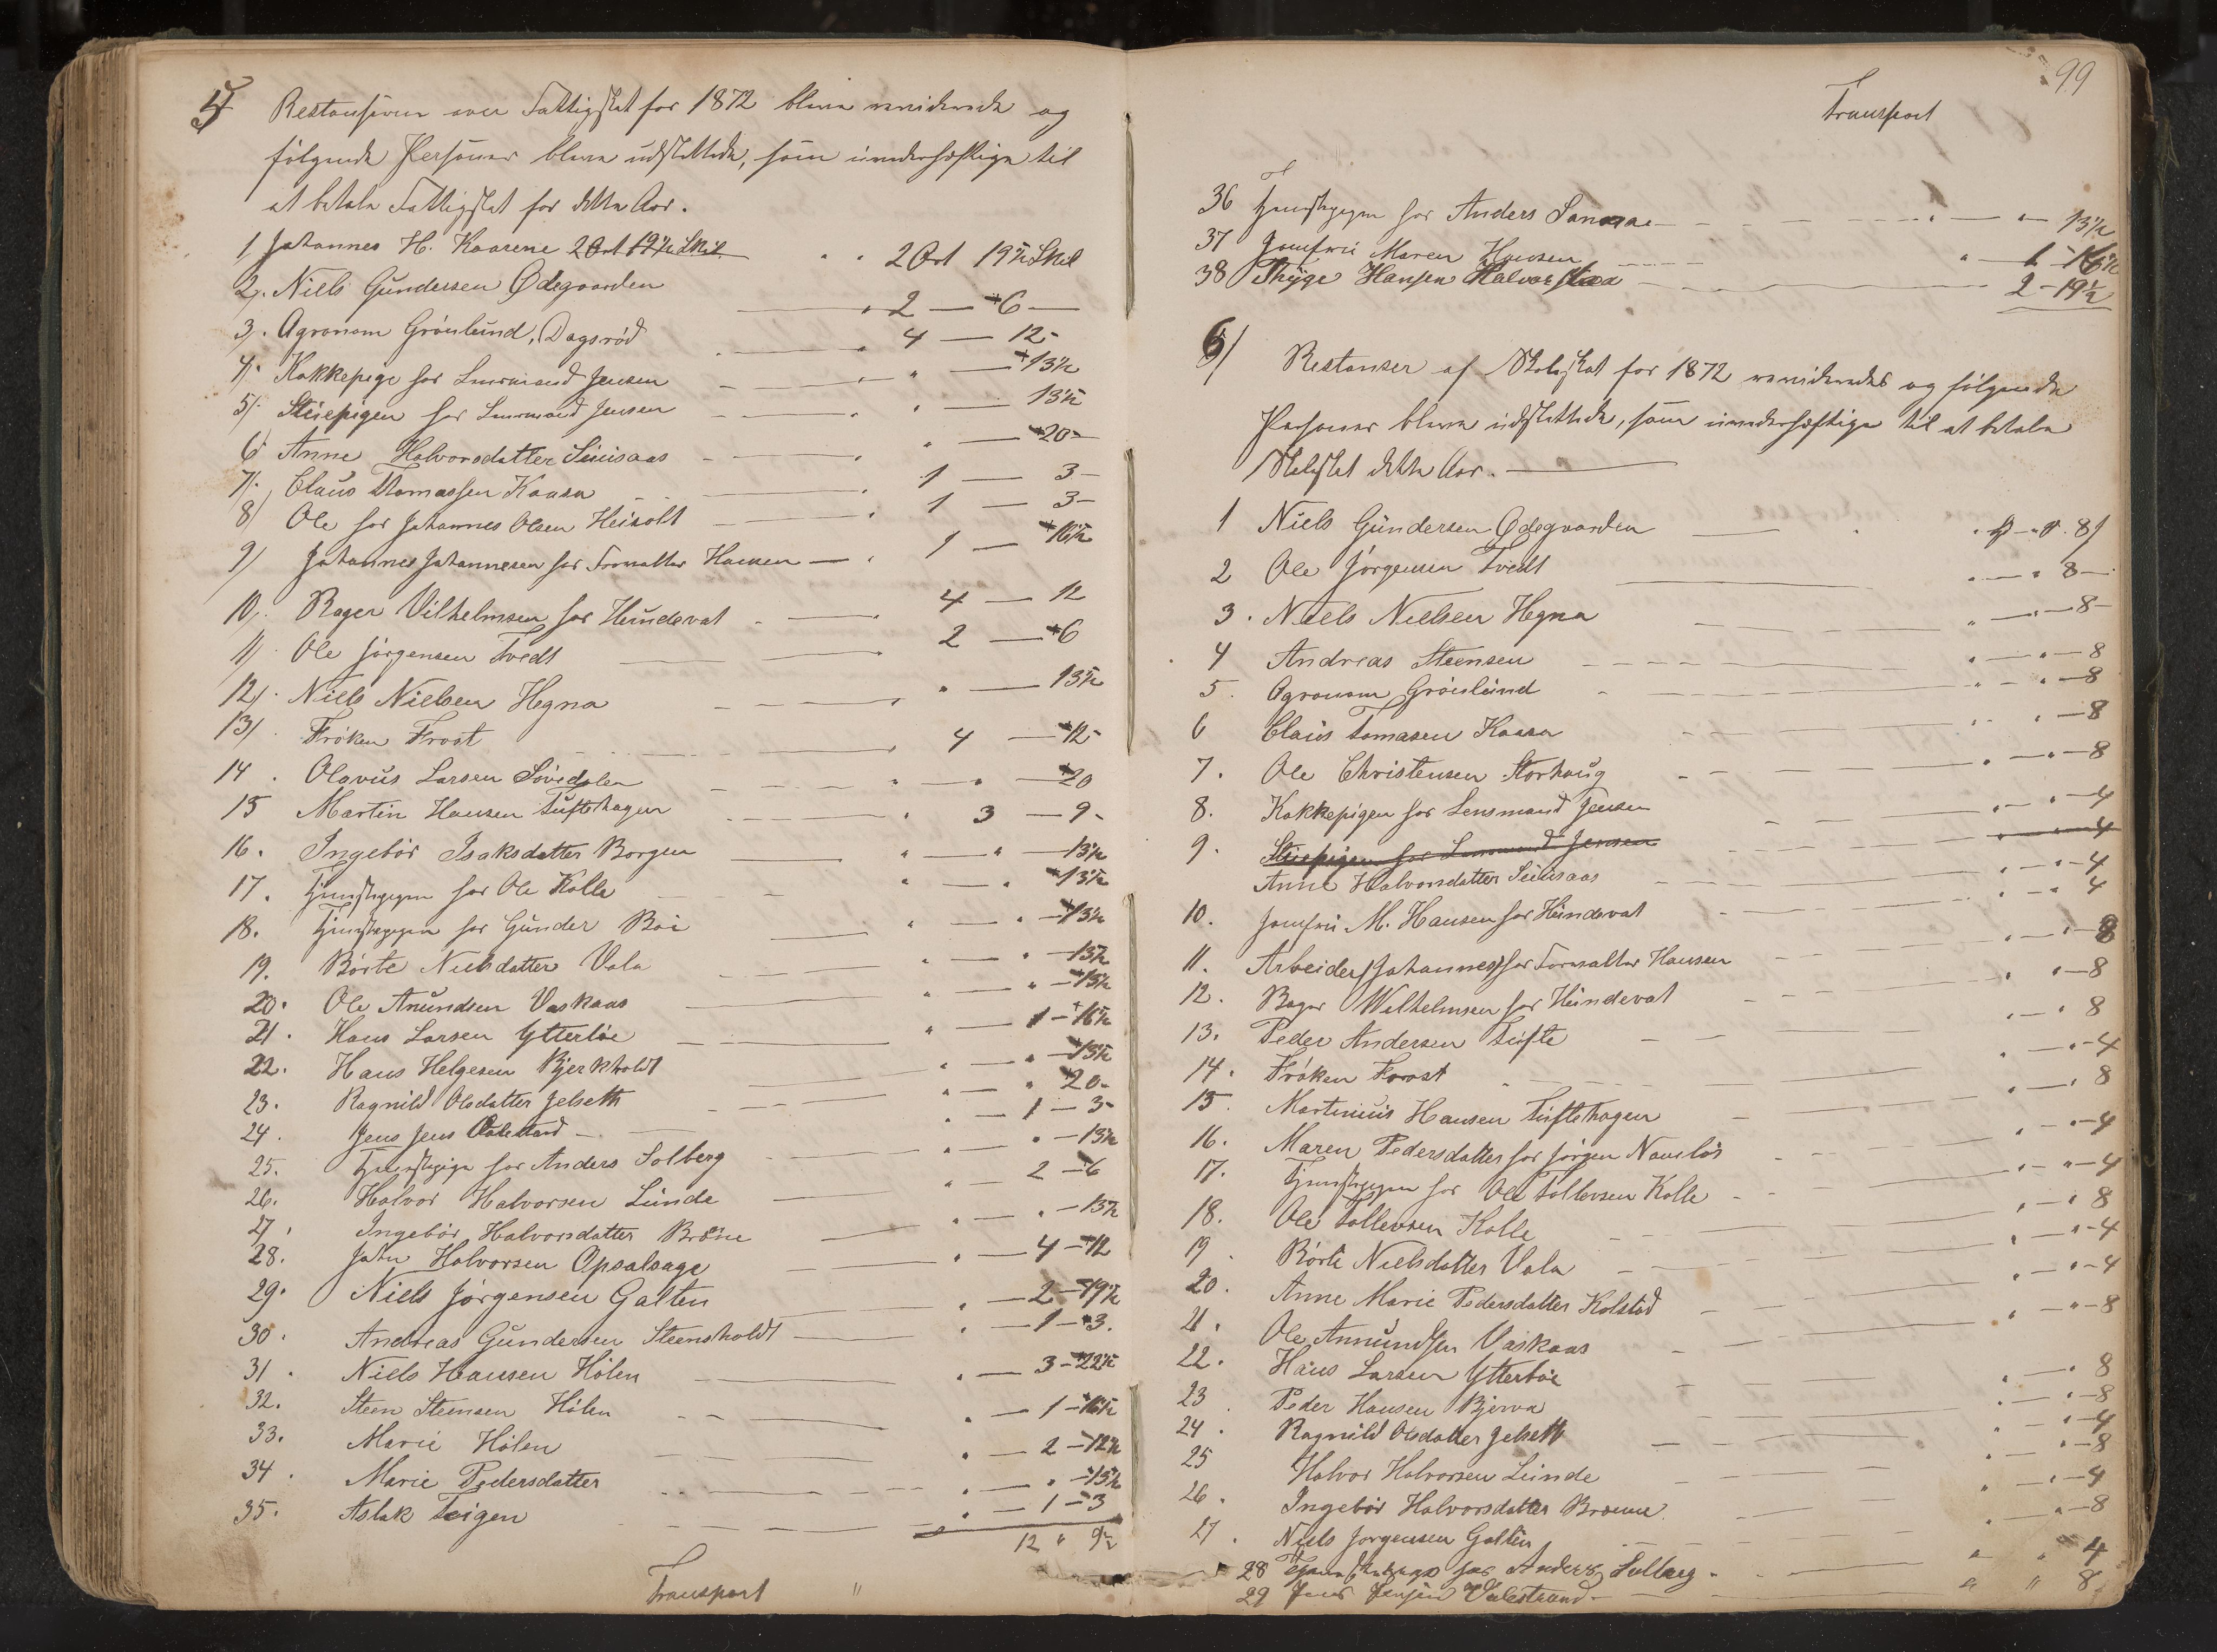 5/ Restansen over Fattigskat for 1872 bleve reviderede og
følgende Personer bleve udslettede, som uvederhæftige til
at betale Fattigskat for dette Aar.
1/ Johannes H. Kaasene 2 Ort 19½ Skil. " " 2 Ort 19½ Skil
2/. Niels Gundersen Ødegaarden " 2 — 6 —
3/. Agronom Grönlund, Dagsrød " 4 — 12 -
4/. Kokkepige hos Lensmand Jensen " " — 13½
5/. Stuepigen hos Lensmand Jensen " " — 13½
6 Anne Halvorsdatter " " — 20 -
7/. Claus Thomassen Kaasa " 1 — 3 -
8/ Ole hos Johannes Olsen Heisholt " 1 — 3 -
9/ Johannes Johannesen hos Forvalter Hansen — " 1 — 16½
10/. Roger Vilhelmsen hos Hundevat " 4 — 12
11/. Ole Jörgensen Tvedt 2 — 6
12/. Niels Nielsen Hegna " — 13½
13/. Fröken Frost 4 — 12 -
14. Olavus Larsen " " — 20
15 Martin Hansen Tuftehagen " 3 — 9 -
16. Ingebör Isaksdatter Borgen " — " — 13½
17. Tjenstepigen hos Ole Kolle " — " — 13½
18. Tjenstepigen hos Gunder Boi " — " — 13½
19. Börte Nielsdatter Vala " — " — 13½
20. Ole Anundsen Vaskaas " — " — 13½
21. Hans Larsen Ytterböe " — 1 — 16½
22. Hans Helgesen Bjerkholdt " — " — 13½
23. Ragnild Olsdatter Jelseth " — " 20 -
24. Jens Jens Valestrand " — 1 — 3 -
25. Tjenstepige hos Anders Solberg " — " — 13½
26. Halvor Halvorsen Lunde " — 2 — 6
27. Ingebör Halvorsdatter " — " — 13½
28. John Halvorsen Opsalsage " — 4 — 12
29. Niels Jörgensen Galten " — 2 — 19½
30. Andreas Gundersen Steensholdt " — 1 — 3.
31. Niels Hansen Hölen " — 3 — 22½
32. Steen Steensen Hölen " — 1 — 16½
33. Marie Hölen " — 2 — 12½
34. Marie Pedersdatter " — " — 13½
35. Aslak Teigen " — 1 — 3
12 " 9½
Transport "
99
Transport
36 Tjenstepigen hos Anders " — " — 13½
37 Jomfru Maren Hansen " — 1 — 16½
38 Thyge Hansen 2 — 19½
6/ Restanser af Skoleskat for 1872 revideredes og følgende
Personer bleve udslettede, som uvederhæftige til at betale
Skoleskat dette Aar. —
1 Niels Gundersen Ødegaarden " — " . 8/
2 Ole Jörgensen Tvedt " — " 8 —
3. Niels Nielsen Hegna " — " — 8 -
4 Andreas Steensen " — " — 8
5. Agronom Grönlund " — " — 8
6 Claus Tomasen Kaasa " " — 8
7. Ole Christensen Storhaug " — " — 8
8. Kokkepigen hos Lensmand Jensen " — " — 4
9. Stuepigen hos Lensmand Jensen " — " — 4
Anne Halvorsdatter " — " — 4
10. Jomfru M. Hansen hos Hundevat " — " 4
11. Arbeider Johannes hos Forvalter Hansen " — " — 8
12. Roger Wilhelmsen hos Hundevat " " — 8
13. Peder Andersen Tufte " — " 8
14. Fröken Frost " — " — 4
15. Martinius Hansen Tuftehagen " — " 8
16. Maren Pedersdatter hos Jörgen Naulös " — " — 4
17. Tjenstepigen hos Ole Tollevsen Kolle " — " — 4
18. Ole Tollevsen Kolle " — " 8
19. Börte Nielsdatter Vala " " — 4
20. Anne Marie Pedersdatter Kolstad " — " — 4
21. Ole Annundsen Vaskaas " — " — 8
22. Hans Larsen Ytterböe " — " 8
23. Peder Hansen Bjerva " — " — 8
24. Ragnild Olsdatter Jelseth " — " — 4
25 Halvor Halvorsen Lunde " — " — 8
26. Ingebör Halvorsdatter " — " — 4
27. Niels Jörgensen Galten " — " — 8
28 hos Anders Solberg " " 4
29 Jens Jensen Valestrand " " 8